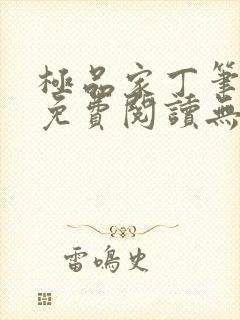 極品家丁筆
免費閱讀無
雷鳴史